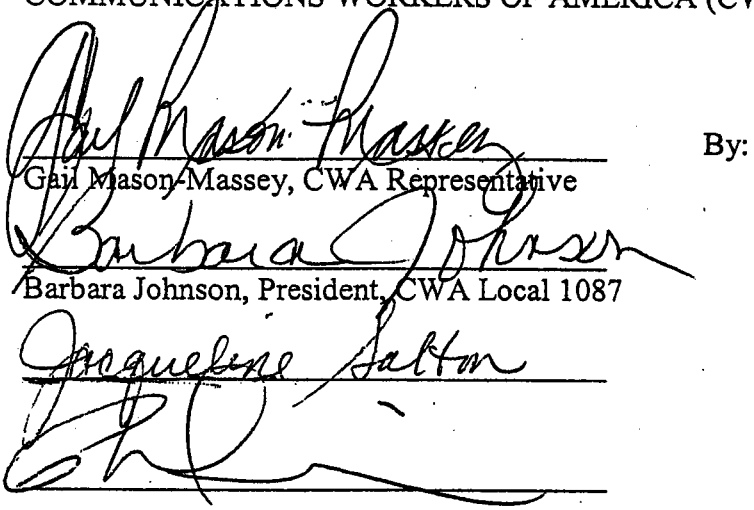 COMMUNICATIONS WORKERS OF AMERICA (CW
Gail Mason-Massey
By:
Gail Mason-Massey, CWA Representative
Barbara Johnson
Barbara Johnson, President, CWA Local 1087
Jacqueline